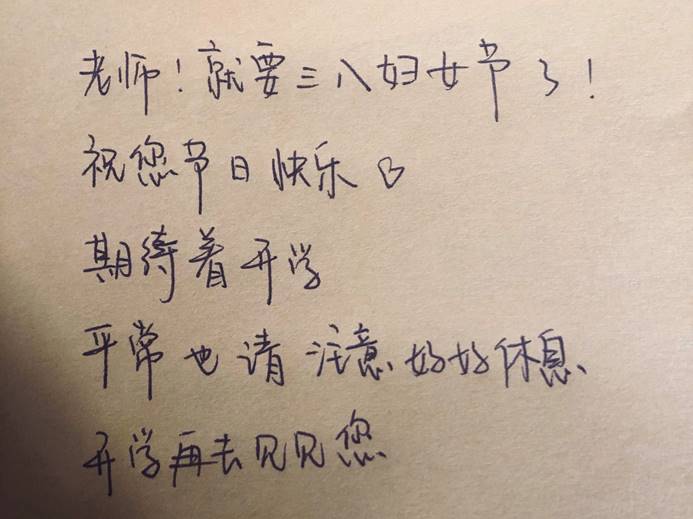 老师！就要三八妇女节了！
祝您节日快乐♡
期待着开学
平常也请注意好好休息
开学再去见见您